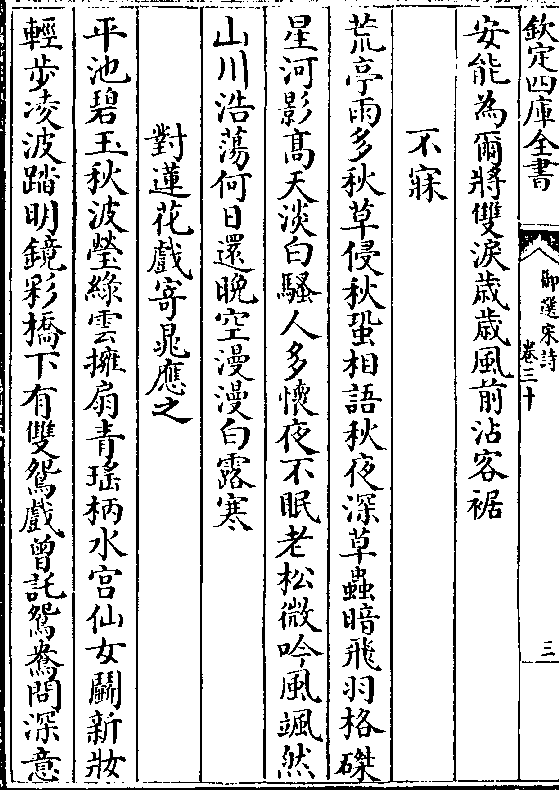 欽定四庫全書
御選宋詩
卷三十
三
安能為爾將雙淚歲歲風前沾客裾
不寐
荒亭雨多秋草侵秋蛩相語秋夜深草蟲暗飛羽格磔
星河影髙天淡白騷人多懷夜不眠老松微吟風颯然
山川浩蕩何日還晚空漫漫白露寒
對蓮花戲寄晁應之
平池碧玉秋波瑩綠雲擁扇青瑤柄水宮仙女鬭新妝
輕步凌波踏明鏡彩橋下有雙鴛戲曾託鴛鴦問深意